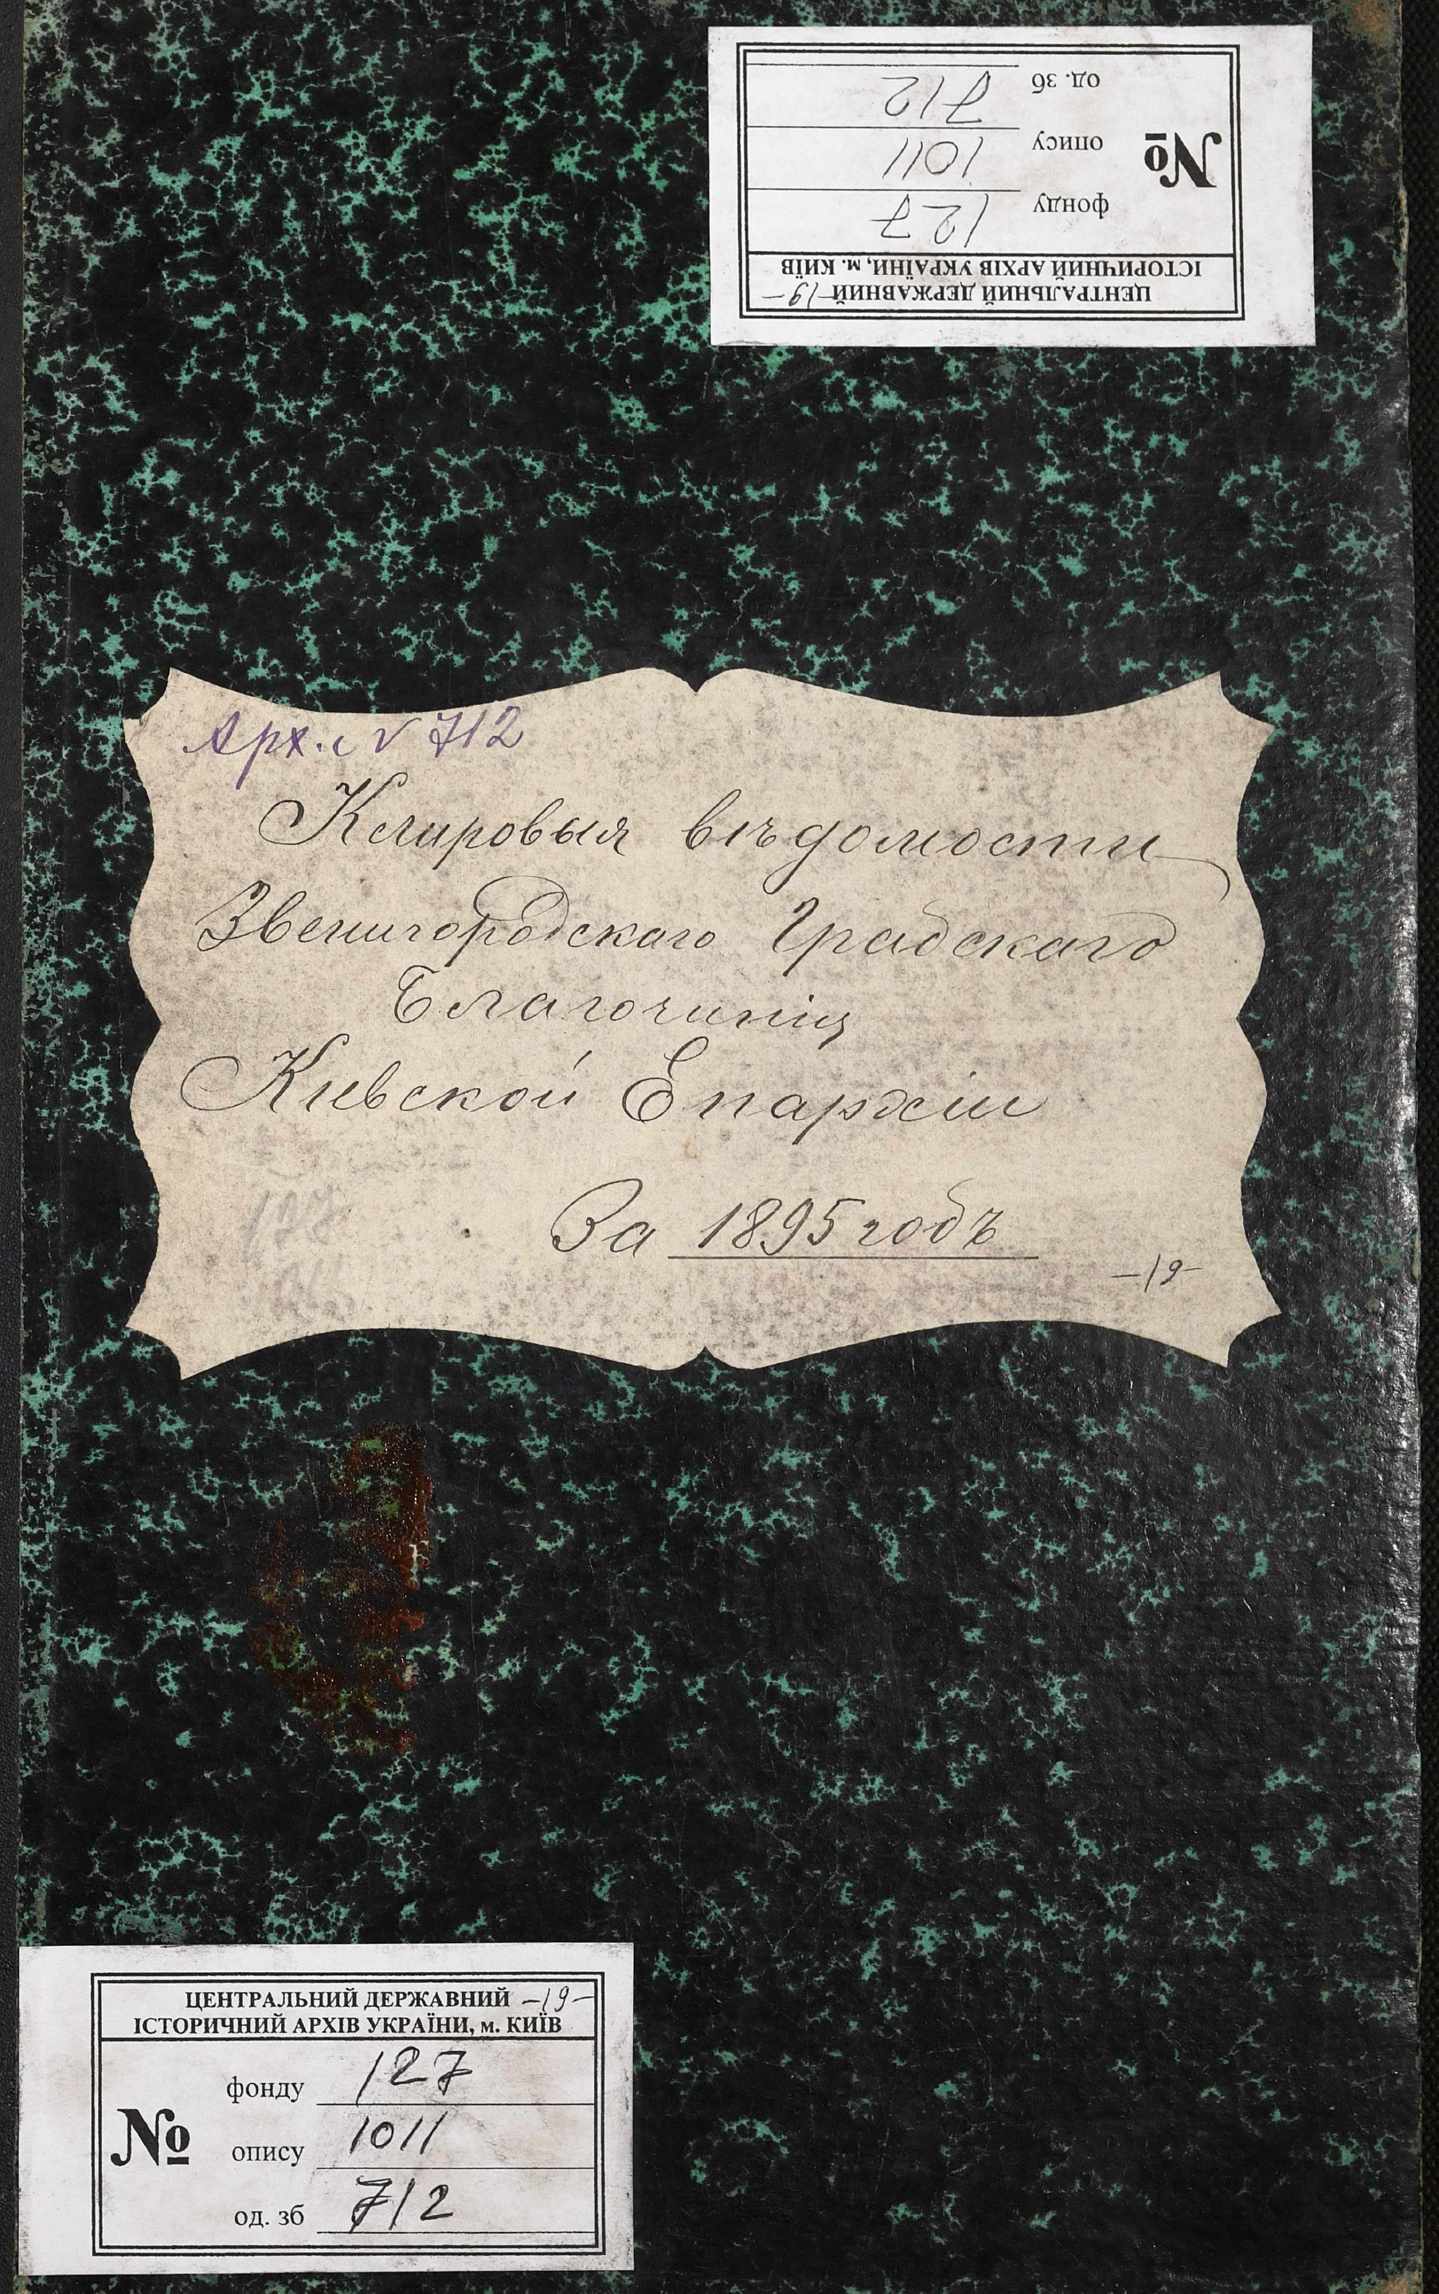 ЦЕНТРАЛЬНИЙ ДЕРЖАВНИЙ -19-
ІСТОРИЧНИЙ АРХІВ УКРАЇНИ, м. КИЇВ
№
фонду 127
опису 1011
од. зб 712
Арх. № 712
Клировыя вѣдомости
Звенигородскаго Градскаго
Благочинія
Киевской Епархіи
За 1895 годъ
-19-
127
ЦЕНТРАЛЬНИЙ ДЕРЖАВНИЙ -19-
ІСТОРИЧНИЙ АРХІВ УКРАЇНИ, м. КИЇВ
№
фонду 127
опису 1011
од. зб 712